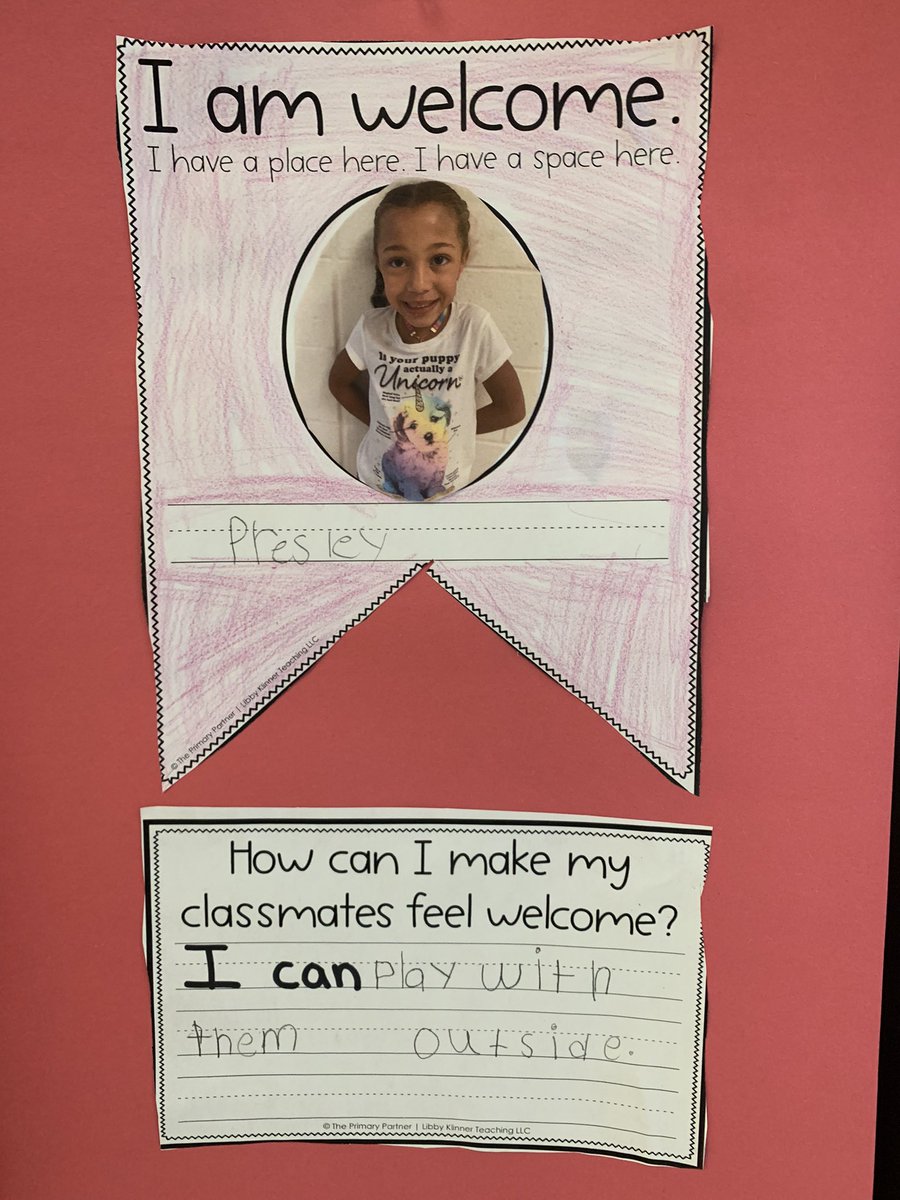 I am welcome.
I have a place here. I have a space here.
Is your puppy
actually a
Unicorn
Presley
© The Primary Partner | Libby Klinner Teaching LLC
How can I make my
classmates feel welcome?
I can play with
them outside.
© The Primary Partner | Libby Klinner Teaching LLC